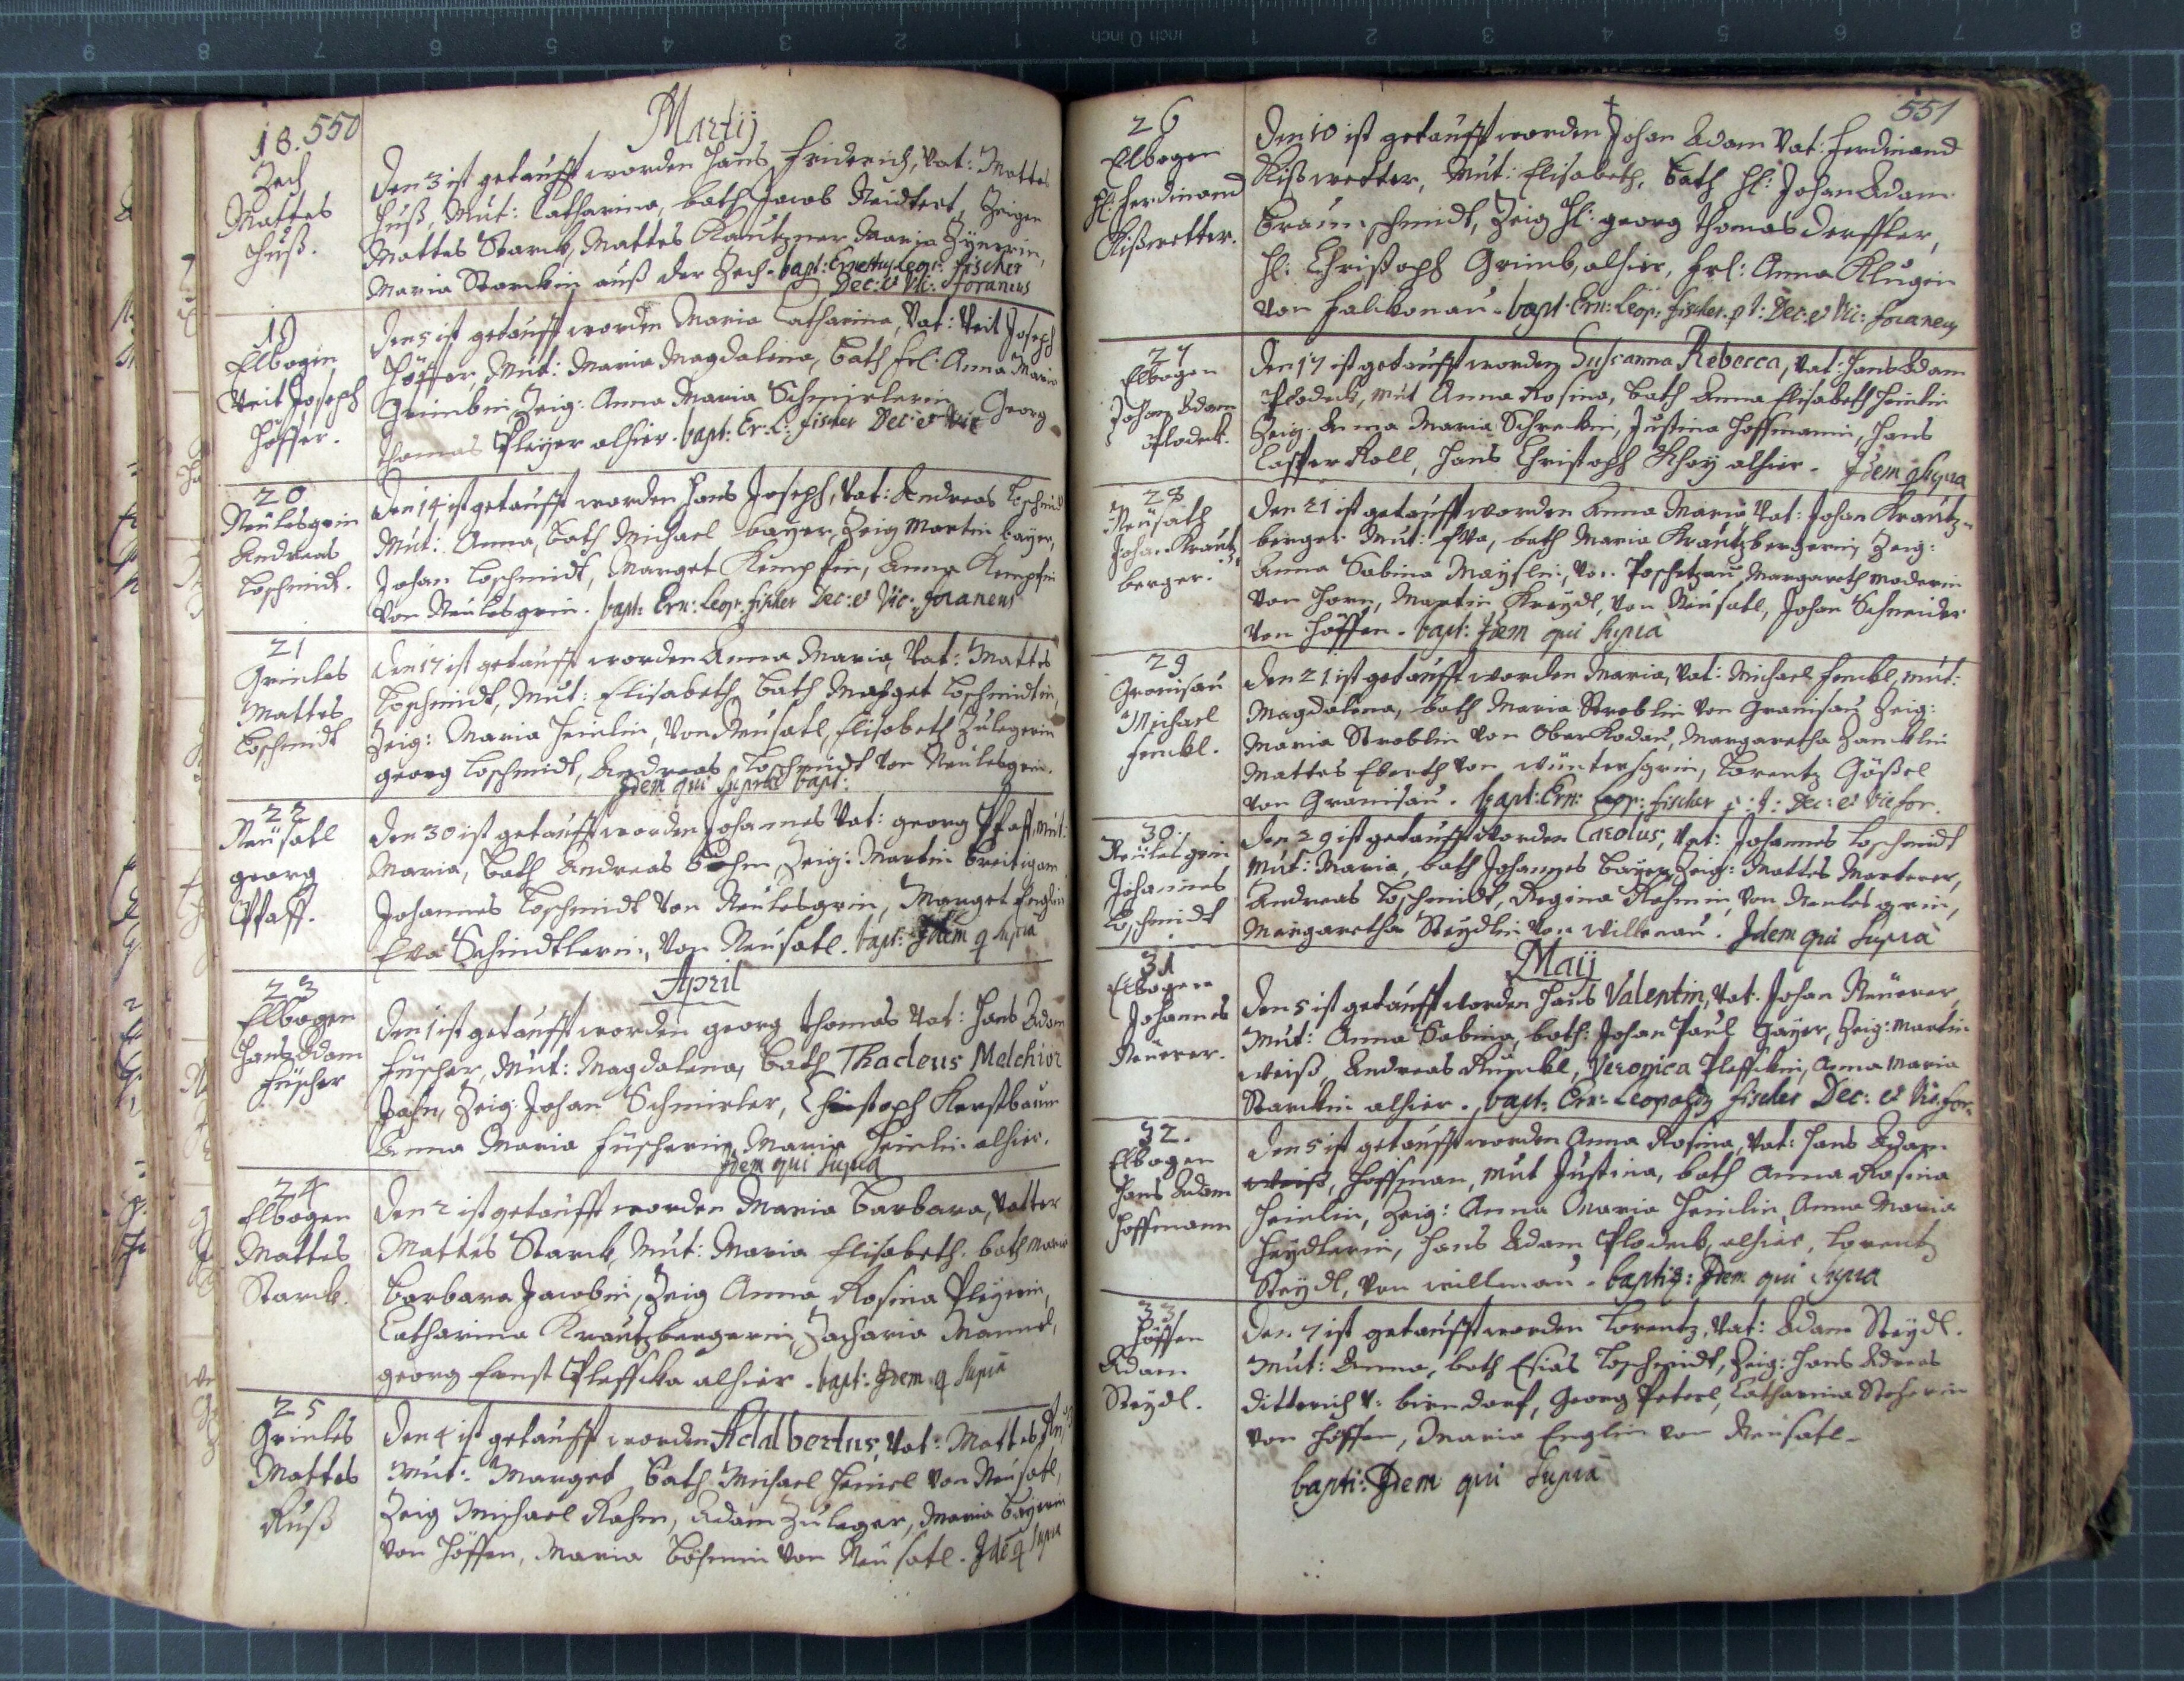 550
Martij
18.
Zech
Mattes
Huß.
Den 3 ist getaufft worden Hans Friderich, Vat: Mattes
Huß, Mut: Catharina, bath Jacob Neidtert, Zeigen
Mattes Starck, Mattes Kautzner Maria
Maria Starckin auß der Zech. bapt: Ernestus Leop: fischer
Dec: et Vic: foraneus
19
Elbogen
Veit Joseph
Höffer.
Den 5 ist getaufft worden Maria Catharina, Vat: Veit Joseph
Höffer, Mut: Maria Magdalena, bath frl: Anna Maria
Grimbin Zeig: Anna Maria Schmirlerin Georg
Thomas Pleyer alhier. bapt: Er: L: fischer Dec: et Vic
20
Neulesgrin
Andreas
Loschmidt.
Den 14 ist getaufft worden Hans Joseph, Vat: Andreas Loschmid
Mut: Anna, bath Michael bayer, Zeig Martin bayer,
Johan Loschmidt, Marget Kempfin, Anna Kempfin
Von Neulesgrin. bapt: Ern: Leop: fischer Dec: et Vic: foraneus
21
Grinles
Mattes
Loschmidt
Den 17 ist getaufft worden Anna Maria, Vat: Mattes
Loschmidt, Mut: Elisabeth, bath Marget Loschmidtin,
Zeig: Maria Heinlin, Von Neusatl, Elisabeth Zulegerin
georg Loschmidt, Andreas Loschmidt von Neulesgrin.
Idem qui supra bapt:
22
Neusatl
georg
Pfaff.
Den 30 ist getaufft worden Johannes Vat: georg Pfaff, Mut:
Maria, bath Andreas Böhm, Zeig: Martin breitigam
Johannes Loschmidt Von Neulesgrin, Marget Englin
Eva Schindtlerin, Von Neusatl. bapt: Idem q supra
April
23
Elbogen
Hans Adam
Füscher
Den 1 ist getaufft worden georg Thomas Vat: Hans Adam
Füscher, Mut: Magdalena, bath Thadeus Melchior
Jahn, Zeig: Johan Schmirler, Christoph Kerstbaum
Anna Maria Füscherin, Maria Heinlin alhier.
Idem qui supra
24
Elbogen
Mattes
Starck.
Den 2 ist getaufft worden Maria Barbara, Vatter
Mattes Starck, Mut: Maria Elisabeth. bath Maria
Barbara Jacobin, Zeig Anna Rosina Pleyerin,
Catharina Krautzbergerin, Zacharia Mannel,
georg Ernst Plesschka alhier. bapt: Idem q supra
25
Grinles
Mattes
Ruß
Den 4 ist getaufft worden Adalbertus, Vat: Mattes Ruß
Mut: Marget bath Michael Heinel von Neusatl,
Zeig Michael Rahm, Adam Zuleger, Maria bayerin
von Höffen, Maria Böhmin von Neusatl. Idē q supra
551
26
Elbogen
Hl: Ferdinand
Kißwetter.
Den 10 ist getaufft worden Johan Adam Vat: Ferdinand
Kißwetter, Mut: Elisabeth, bath Hl: Johan Adam
Braunschmidt, Zeig Hl: georg Thomas Derffler,
Hl: Christoph Grimb, alhier, frl: Anna Klugin
von Falckenau. bapt. Ern: Leop: fischer. p t: Dec: et Vic: foraneus
27
Elbogen
Johan Adam
Plodeck.
Den 17 ist getaufft worden Susanna Rebecca, Vat: Hans Adam
Plodeck, Mut Anna Rosina, bath Anna Elisabeth Heinlin
Zeig. Anna Maria Schreckin, Justina Hoffmanin, Hans
Casper Koll, Hans Christoph alhier. Idem q supra
28
Neusath
Johan Krautz
berger.
Den 21 ist getaufft worden Anna Maria Vat: Johan Krautz-
berger Mut: Eva, bath Maria Krautzbergerin, Zeig:
Anna Sabina Mayslin, von Poschetzau, Margareth Moderin
Von Horn, Martin Kreydl, von Neusatl, Johan Schneider
von Höffen. bapt: Idem qui supra
29
Granisau
Michael
Fenckl.
Den 21 ist getaufft worden Maria, Vat: Michael Fenckl, Mut:
Magdalena, bath Maria Stroblin von Granisau Zeig:
Maria Stroblin von Ober Kodau, Margaretha Zancklin
Mattes Eberth von Wüntersgrin, Lorentz Gößel
von Granisau. bapt: Ern: Leop: fischer p: t: Dec: et Vic for.
30.
Neulesgrin
Johannes
Loschmidt
Den 29 ist getaufft worden Carolus, Vat: Johannes Loschmidt
Mut: Maria, bath Johannes bayer, Zeig: Mattes Marterer,
Andreas Loschmidt, Regina Rahmin, von Neulesgrin,
Margaretha Steydlin von Willenau. Idem qui supra
Maij
31
Elbogen
Johannes
Neuerer.
Den 5 ist getaufft worden Hans Valentin, Vat. Johan Neuerer,
Mut: Anna Sabina, bath: Johan Paul Gayer, Zeig: Martin
Weiß, Andreas Kunckl, Veronica Plesschkin, Anna Maria
Starckin alhier. bapt: Ern: Leopoldus fischer Dec: et Vic: for:
32.
Elbogen
Hans Adam
Hoffmann
Den 5 ist getaufft worden Anna Rosina, Vat: Hans Adam
Weiß, Hoffman, Mut Justina, bath Anna Rosina
Heinlin, Zeig: Anna Maria Heinlin Anna Maria
Heydlerin, Hans Adam Plodeck, alhier, Lorentz
Steydl, von Willenau. baptiz: Idem qui supra
33
Höffen
Adam
Steydl.
Den 7 ist getaufft worden Lorentz, Vat: Adam Steydl.
Mut: Anna, bath Esias Loschmidt, Zeig: Hans Adreas
Ditterich v: birndorf, Georg Peterl, Catharina
von Höffen, Maria Englin von Neusatl.
bapti: Idem qui supra